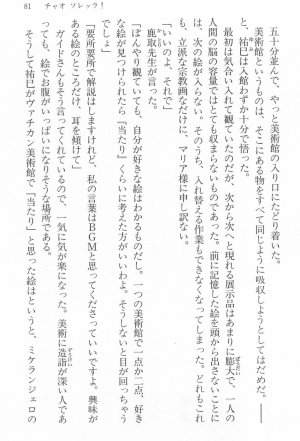 81　チャオ ソレッラ！
五十分並んで、やっと美術館の入り口にたどり着いた。
美術館というものは、そこにある物をすべて同じように吸収しようとしてはだめだ。――
と、祐巳は入館わずか十分で悟った。
最初は気合い入れて観ていたのだが、次から次へと現れる展示品はあまりに膨大で、一人の
人間の脳の容量ではとても収まるものではなかった。前に記憶した絵を頭から出さないことに
は、次の絵が入らない。そのうち、入れ替える作業もできなくなってしまった。どれもこれ
も、立派な宗教画なだけに、マリア様に申し訳ない。
「いいのよ、それで」
鹿取先生が言った。
「ぼんやり観ていても、自分が好きな絵はわかるものだし。一つの美術館で一点か二点、好き
な絵が見つけられたら「当たり」くらいに考えた方がいいわよ。そうしないと目が回っちゃう
「要所要所で解説はしますけれど、私の言葉はＢＧＭと思ってくださっていいですよ。興味が
ある絵のところだけ、耳を傾けて」
ガイドさんもそう言ってくれているので、一気に気が楽になった。美術に造詣が深い人であ
ればあるほど、絵でお腹がいっぱいになりそうな場所である。
そうして祐巳がヴァチカン美術館で「当たり」と思った絵はというと、ミケランジェロの